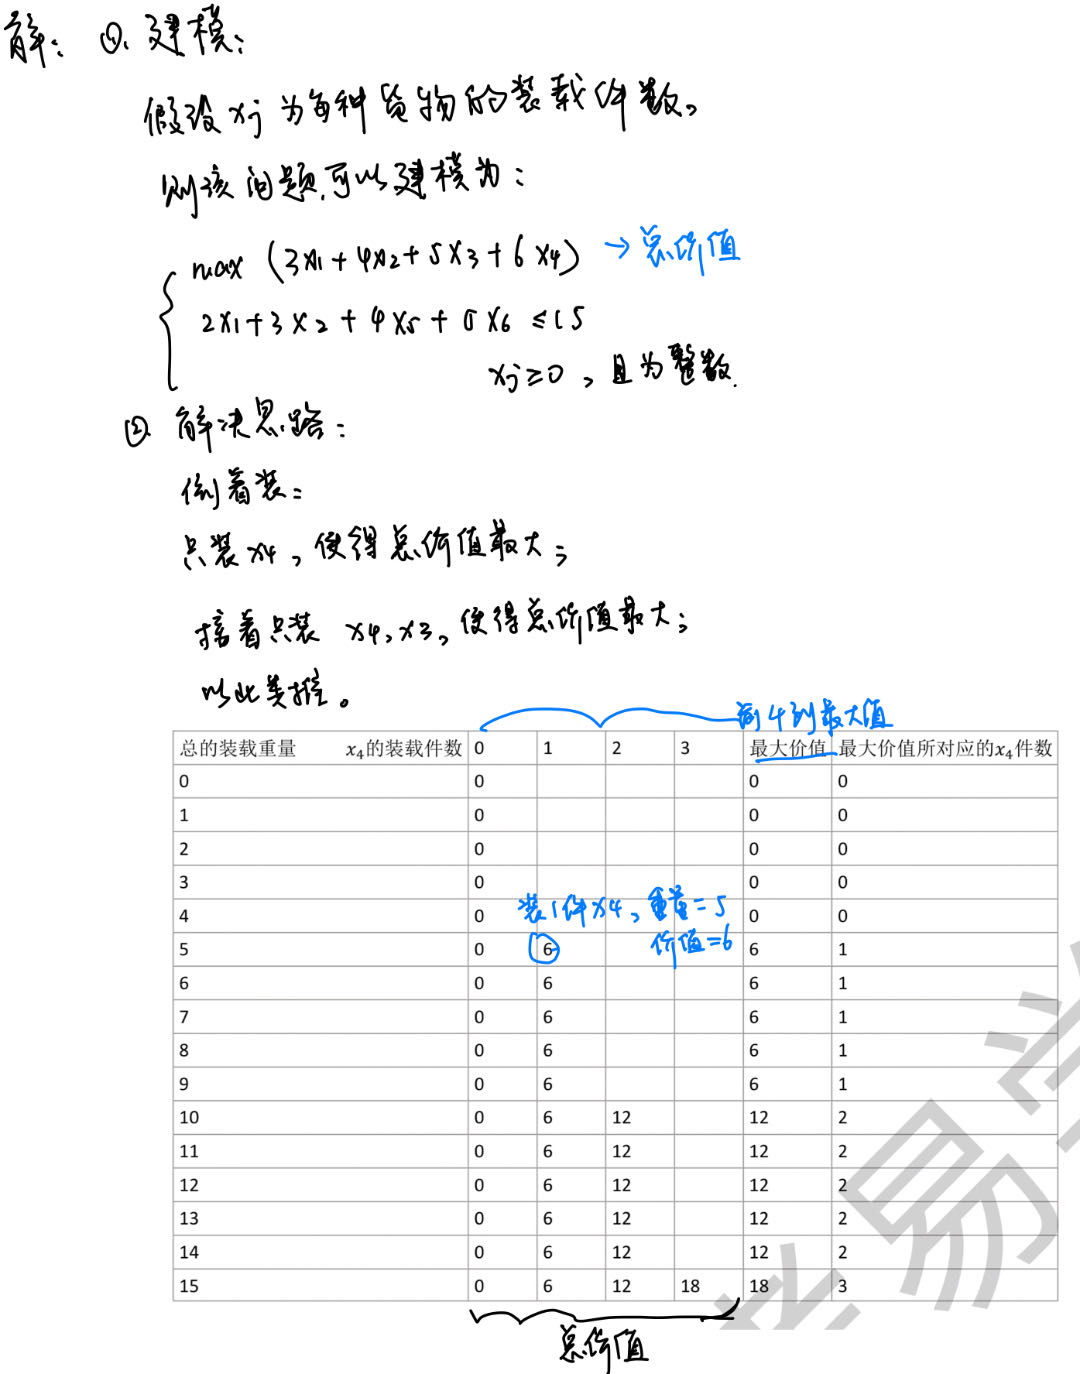 解：①. 建模：
假设xj为每种货物的装载件数,
则该问题可以建模为：
max (3x1+4x2+5x3+6x4) → 总价值
2x1+3x2+4x5+5x6 ≤15
xj≥0，且为整数.
② 解决思路：
倒着装：
只装x4，使得总价值最大；
接着只装 x4,x3，使得总价值最大；
以此类推。
前4列最大值
总的装载重量 x₄的装载件数 0 1 2 3 最大价值 最大价值所对应的x₄件数
0 0 0 0
1 0 0 0
2 0 0 0
3 0 0 0
4 0 装1件x4，重量=5 0 0
价值=6
5 0 6 6 1
6 0 6 6 1
7 0 6 6 1
8 0 6 6 1
9 0 6 6 1
10 0 6 12 12 2
11 0 6 12 12 2
12 0 6 12 12 2
13 0 6 12 12 2
14 0 6 12 12 2
15 0 6 12 18 18 3
总价值
易学